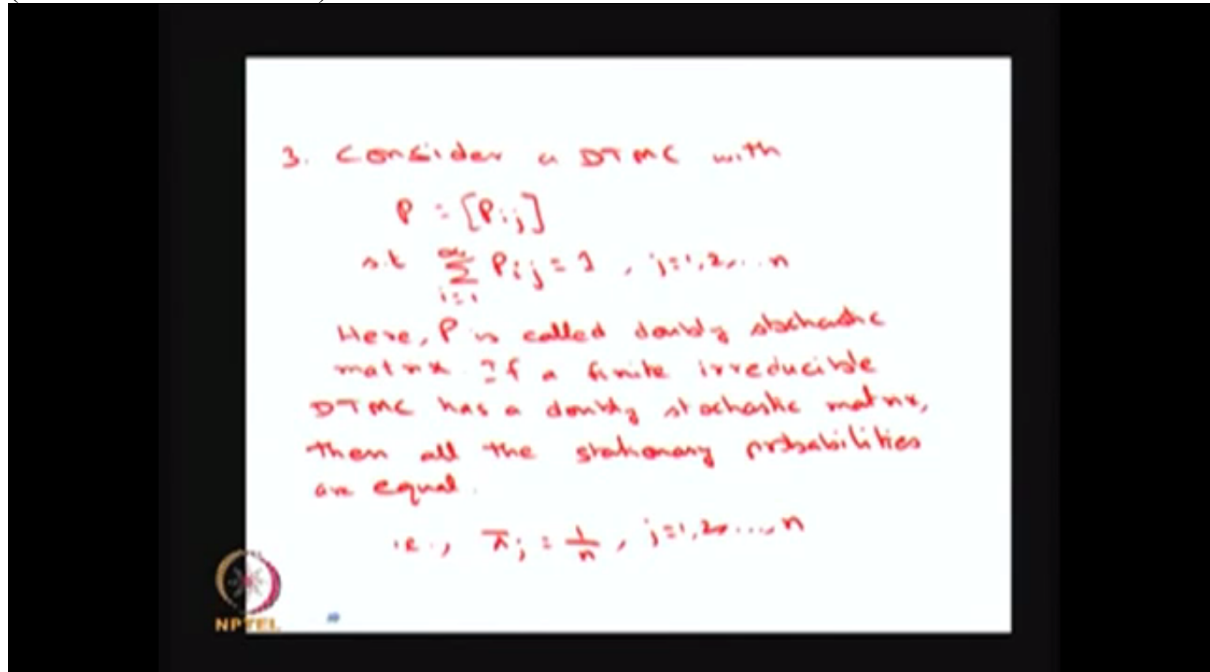 3. Consider a DTMC with
P = [Pij]
s.t ∑_{i=1}^{∞} Pij = 1, j=1,2,...n
Here, P is called doubly stochastic
matrix. If a finite irreducible
DTMC has a doubly stochastic matrix,
then all the stationary probabilities
are equal.
i.e., πj = 1/n, j=1,2,...,n
NPTEL